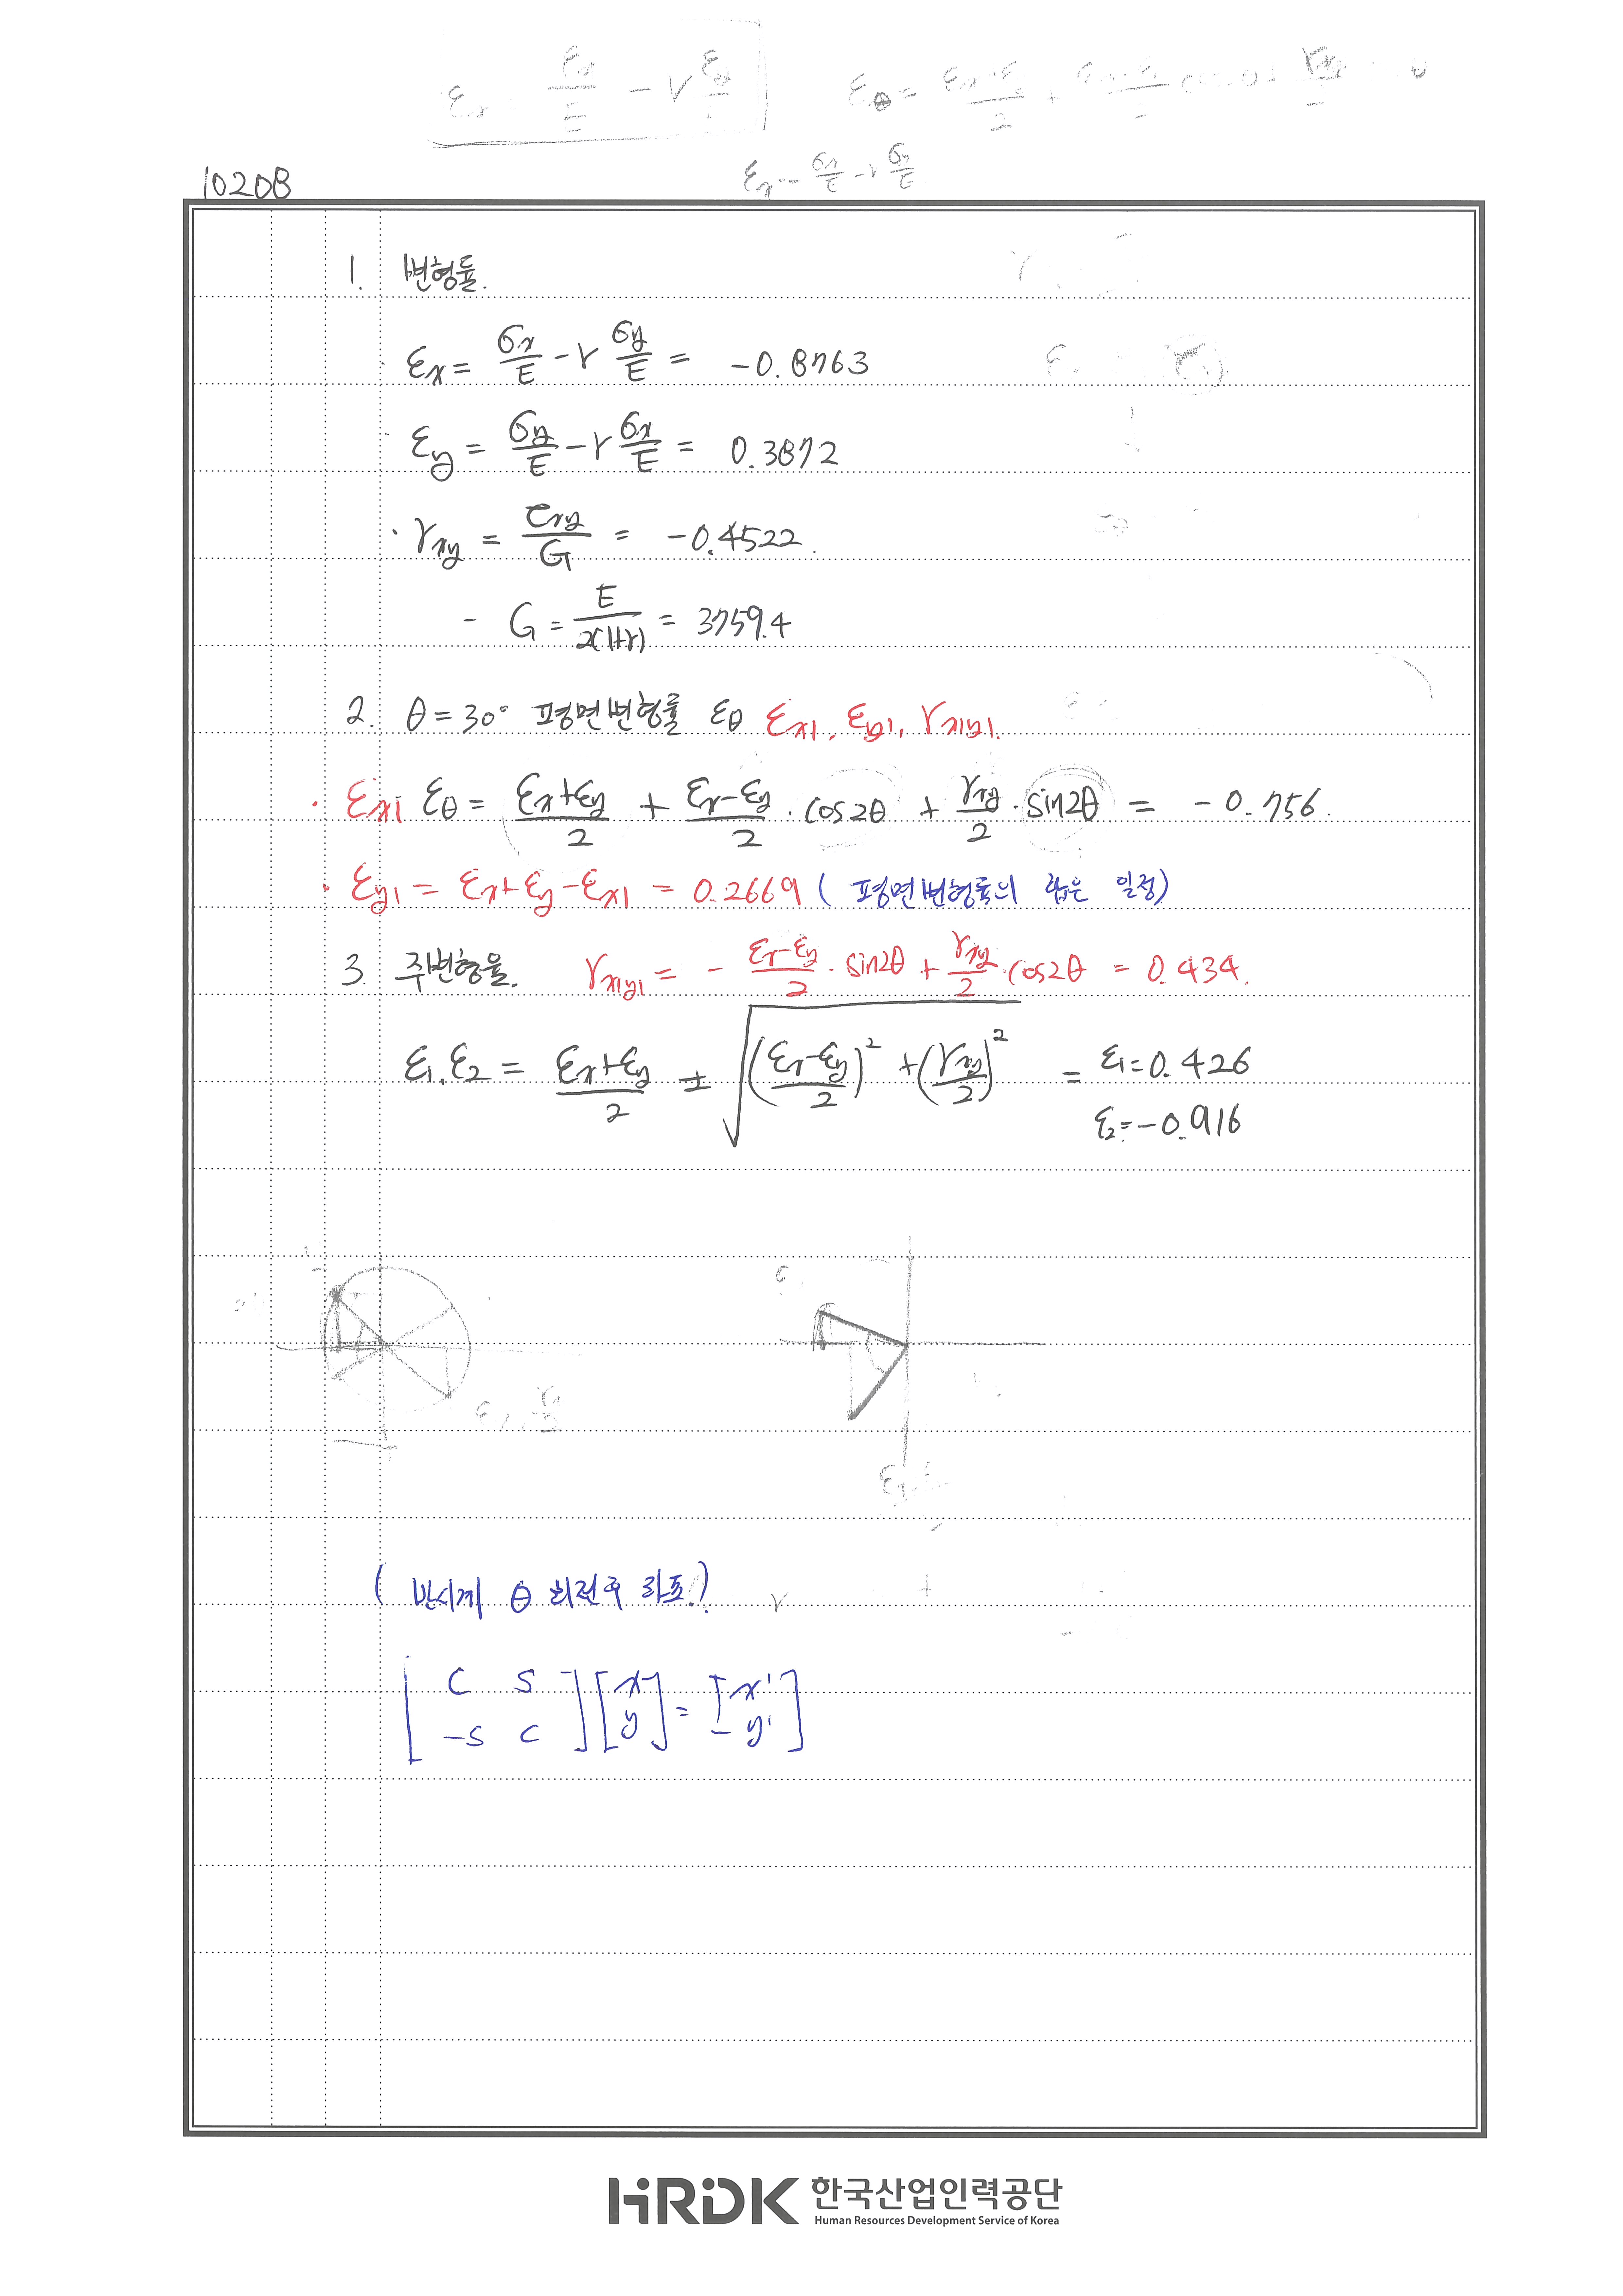 10208
1. 변형률.
εx = σx/E - ν σy/E = -0.8763
εy = σy/E - ν σx/E = 0.3872
· γxy = τxy/G = -0.4522
- G = E/2(1+ν) = 3759.4
2. θ = 30° 평면변형률 εθ εx1, εy1, γx1y1.
· εx1 εθ = (εx+εy)/2 + (εx-εy)/2 · cos2θ + γxy/2 · sin2θ = -0.756.
· εy1 = εx+εy-εx1 = 0.2669 ( 평면변형률의 합은 일정)
3. 주변형율. γx1y1 = - (εx-εy)/2 · sin2θ + γxy/2 · cos2θ = 0.434.
ε1, ε2 = (εx+εy)/2 ± √(((εx-εy)/2)² + (γxy/2)²) = ε1=0.426
ε2=-0.916
( 반시계 θ 회전후 좌표)
[ C S
-S C ] [x
y] = [x'
y']
HRDK 한국산업인력공단
Human Resources Development Service of Korea